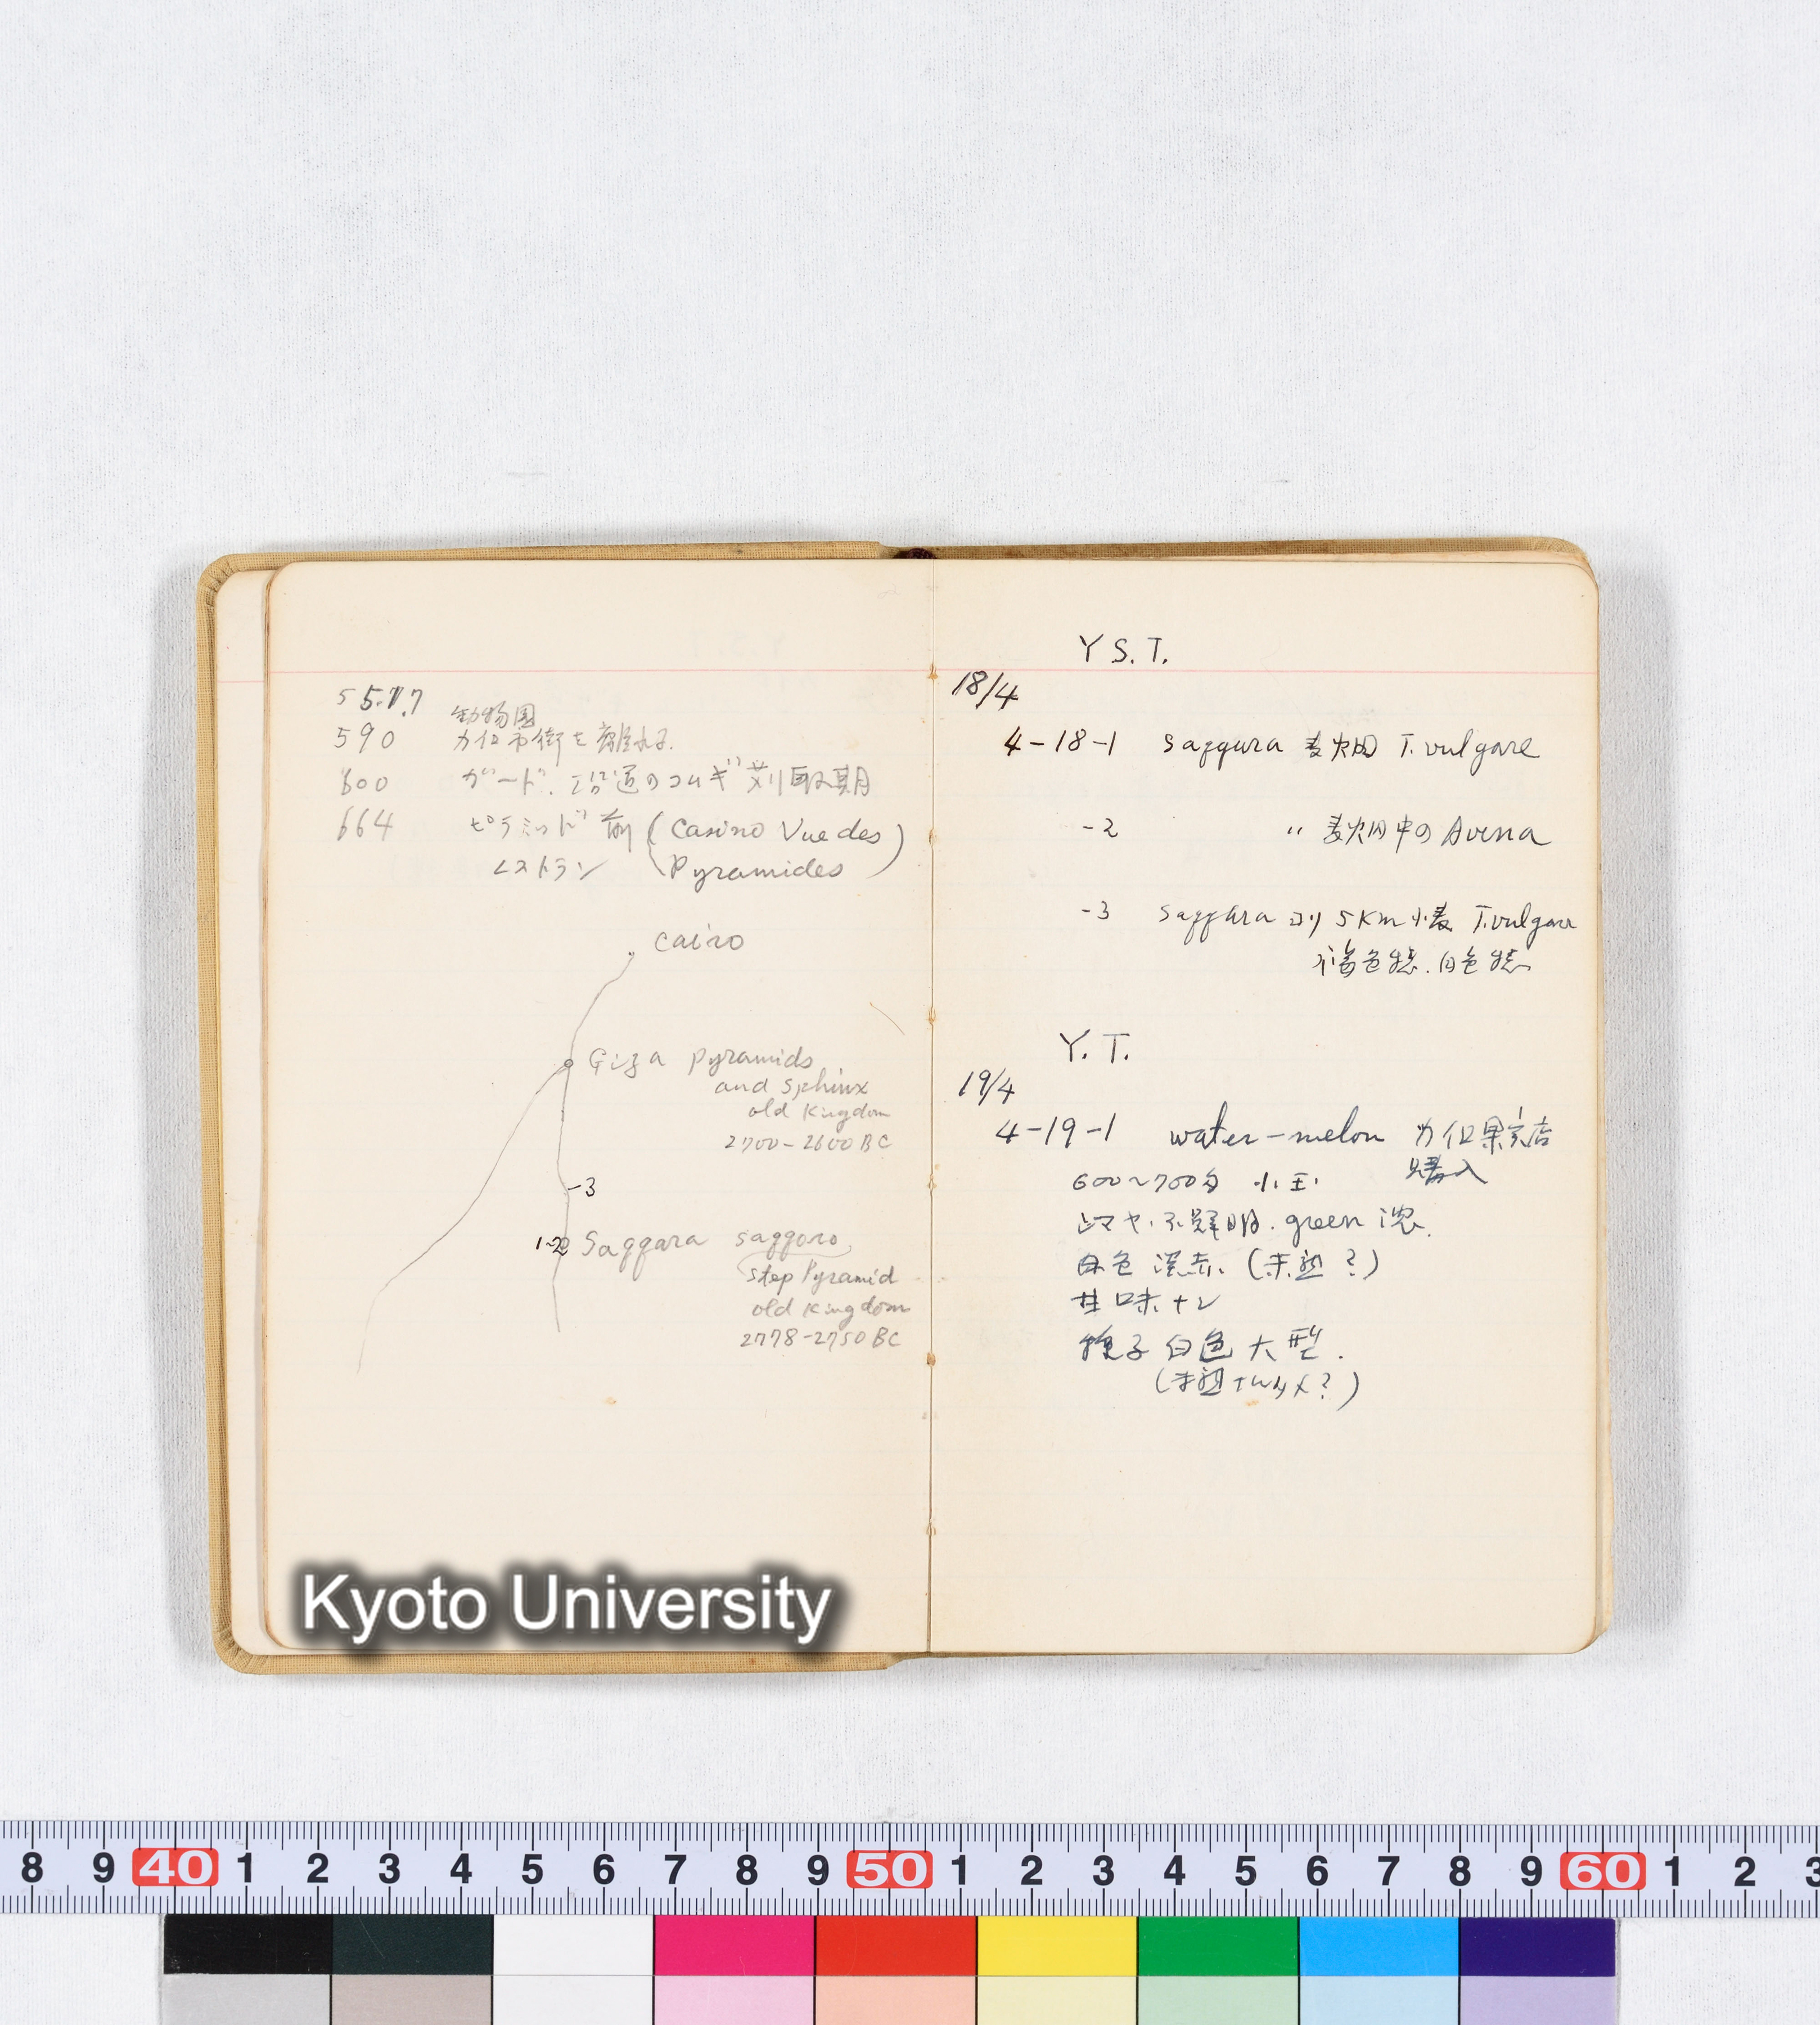 557.7 動物園
590 カイロ市街を離れる.
600 ガード. 沿道のコムギ刈取期
664 ピラミッド前 (Casino Vue des
レストラン Pyramides)
Cairo
Giza Pyramids
and Sphinx
old Kingdom
2700-2600 BC
-3
1-2 Saqqara saqqara
step Pyramid
old Kingdom
2778-2750 BC
Y S. T.
18/4
4-18-1 Saqqara 麦畑 T. vulgare
-2 〃 麦畑中の Avena
-3 Saqqara ヨリ 5Km 小麦 T. vulgare
褐色穂. 白色穂
Y. T.
19/4
4-19-1 water-melon カイロ果実店
購入
600~700匁 小玉
シマヤヽ不鮮明. green 濃.
肉色 淡赤 (未熟?)
甘味ナシ
種子 白色 大型.
(未熟ナルタメ?)
Kyoto University
8 9 40 1 2 3 4 5 6 7 8 9 50 1 2 3 4 5 6 7 8 9 60 1 2 3